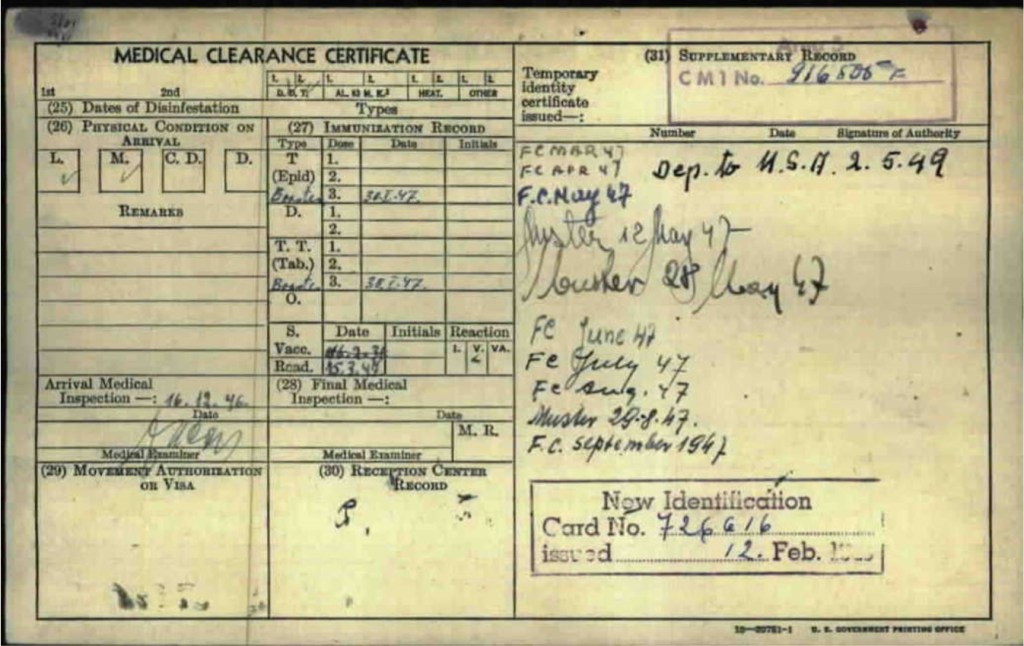 MEDICAL CLEARANCE CERTIFICATE
1st 2nd
1. 2. 1. 2. 1. 2. 1. 2.
D. D. T. AL. 63 M. K.² HEAT. OTHER
(25) Dates of Disinfestation Types
(26) PHYSICAL CONDITION ON
ARRIVAL
L. M. C. D. D.
REMARKS
(27) IMMUNIZATION RECORD
Type Dose Date Initials
T 1.
(Epid) 2.
Booster 3. 30.I.47.
D. 1.
2.
T. T. 1.
(Tab.) 2.
Booster 3. 30.I.47.
O.
S. Date Initials Reaction
Vacc. I. V. VA.
Read.
Arrival Medical
Inspection —: 16.12.46.
Date
Medical Examiner
(28) Final Medical
Inspection —:
Date
M. R.
Medical Examiner
(29) MOVEMENT AUTHORIZATION
OR VISA
(30) RECEPTION CENTER
RECORD
(31) SUPPLEMENTARY RECORD
Temporary
identity
certificate
issued—:
CM1 No. 916505
Number Date Signature of Authority
FC MAR 47
FC APR 47
F.C. May 47
Dep. to U.S.A. 2. 5. 49
Muster 12 May 47
Muster 28 May 47
FC June 47
FC July 47
FC Aug. 47
Muster 29.8.47.
F.C. September 1947
New Identification
Card No. 726616
issued 12. Feb.
16—39751-1 U. S. GOVERNMENT PRINTING OFFICE